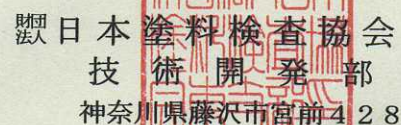 財団法人日本塗料検査協会
技術開発部
神奈川県藤沢市宮前428